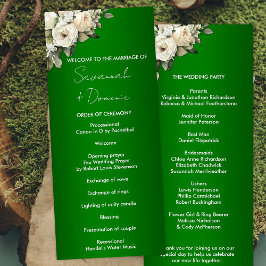 WELCOME TO THE MARRIAGE OF
Savannah
& Dominic
ORDER OF CEREMONY
Processional
Canon in D by Pachelbel
Welcome
Opening prayer
The Wedding Prayer
by Robert Louis Stevenson
Exchange of vows
Exchange of rings
Lighting of unity candle
Blessing
Presentation of couple
Recessional
Handel's Water Music
THE WEDDING PARTY
Parents
Virginia & Jonathan Richardson
Rebecca & Michael Featherstone
Maid of Honor
Jennifer Peterson
Best Man
Daniel Fitzpatrick
Bridesmaids
Chloe Anne Richardson
Elizabeth Chadwick
Susannah Merriweather
Ushers
Lewis Henderson
Phillip Carmichael
Robert Buckingham
Flower Girl & Ring Bearer
Melissa Nicholson
& Cody McPherson
hank you for joining us on our
special day to help us celebrate
our new life together.